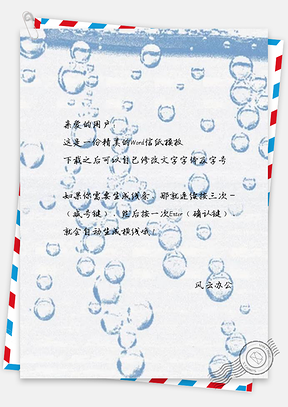 亲爱的用户
这是一份精美的Word信纸模板
下载之后可以自己修改文字字体及字号
如果你需要生成线条，那就连续按三次－
（减号键），然后按一次Enter（确认键）
就会自动生成横线哦！
风云办公